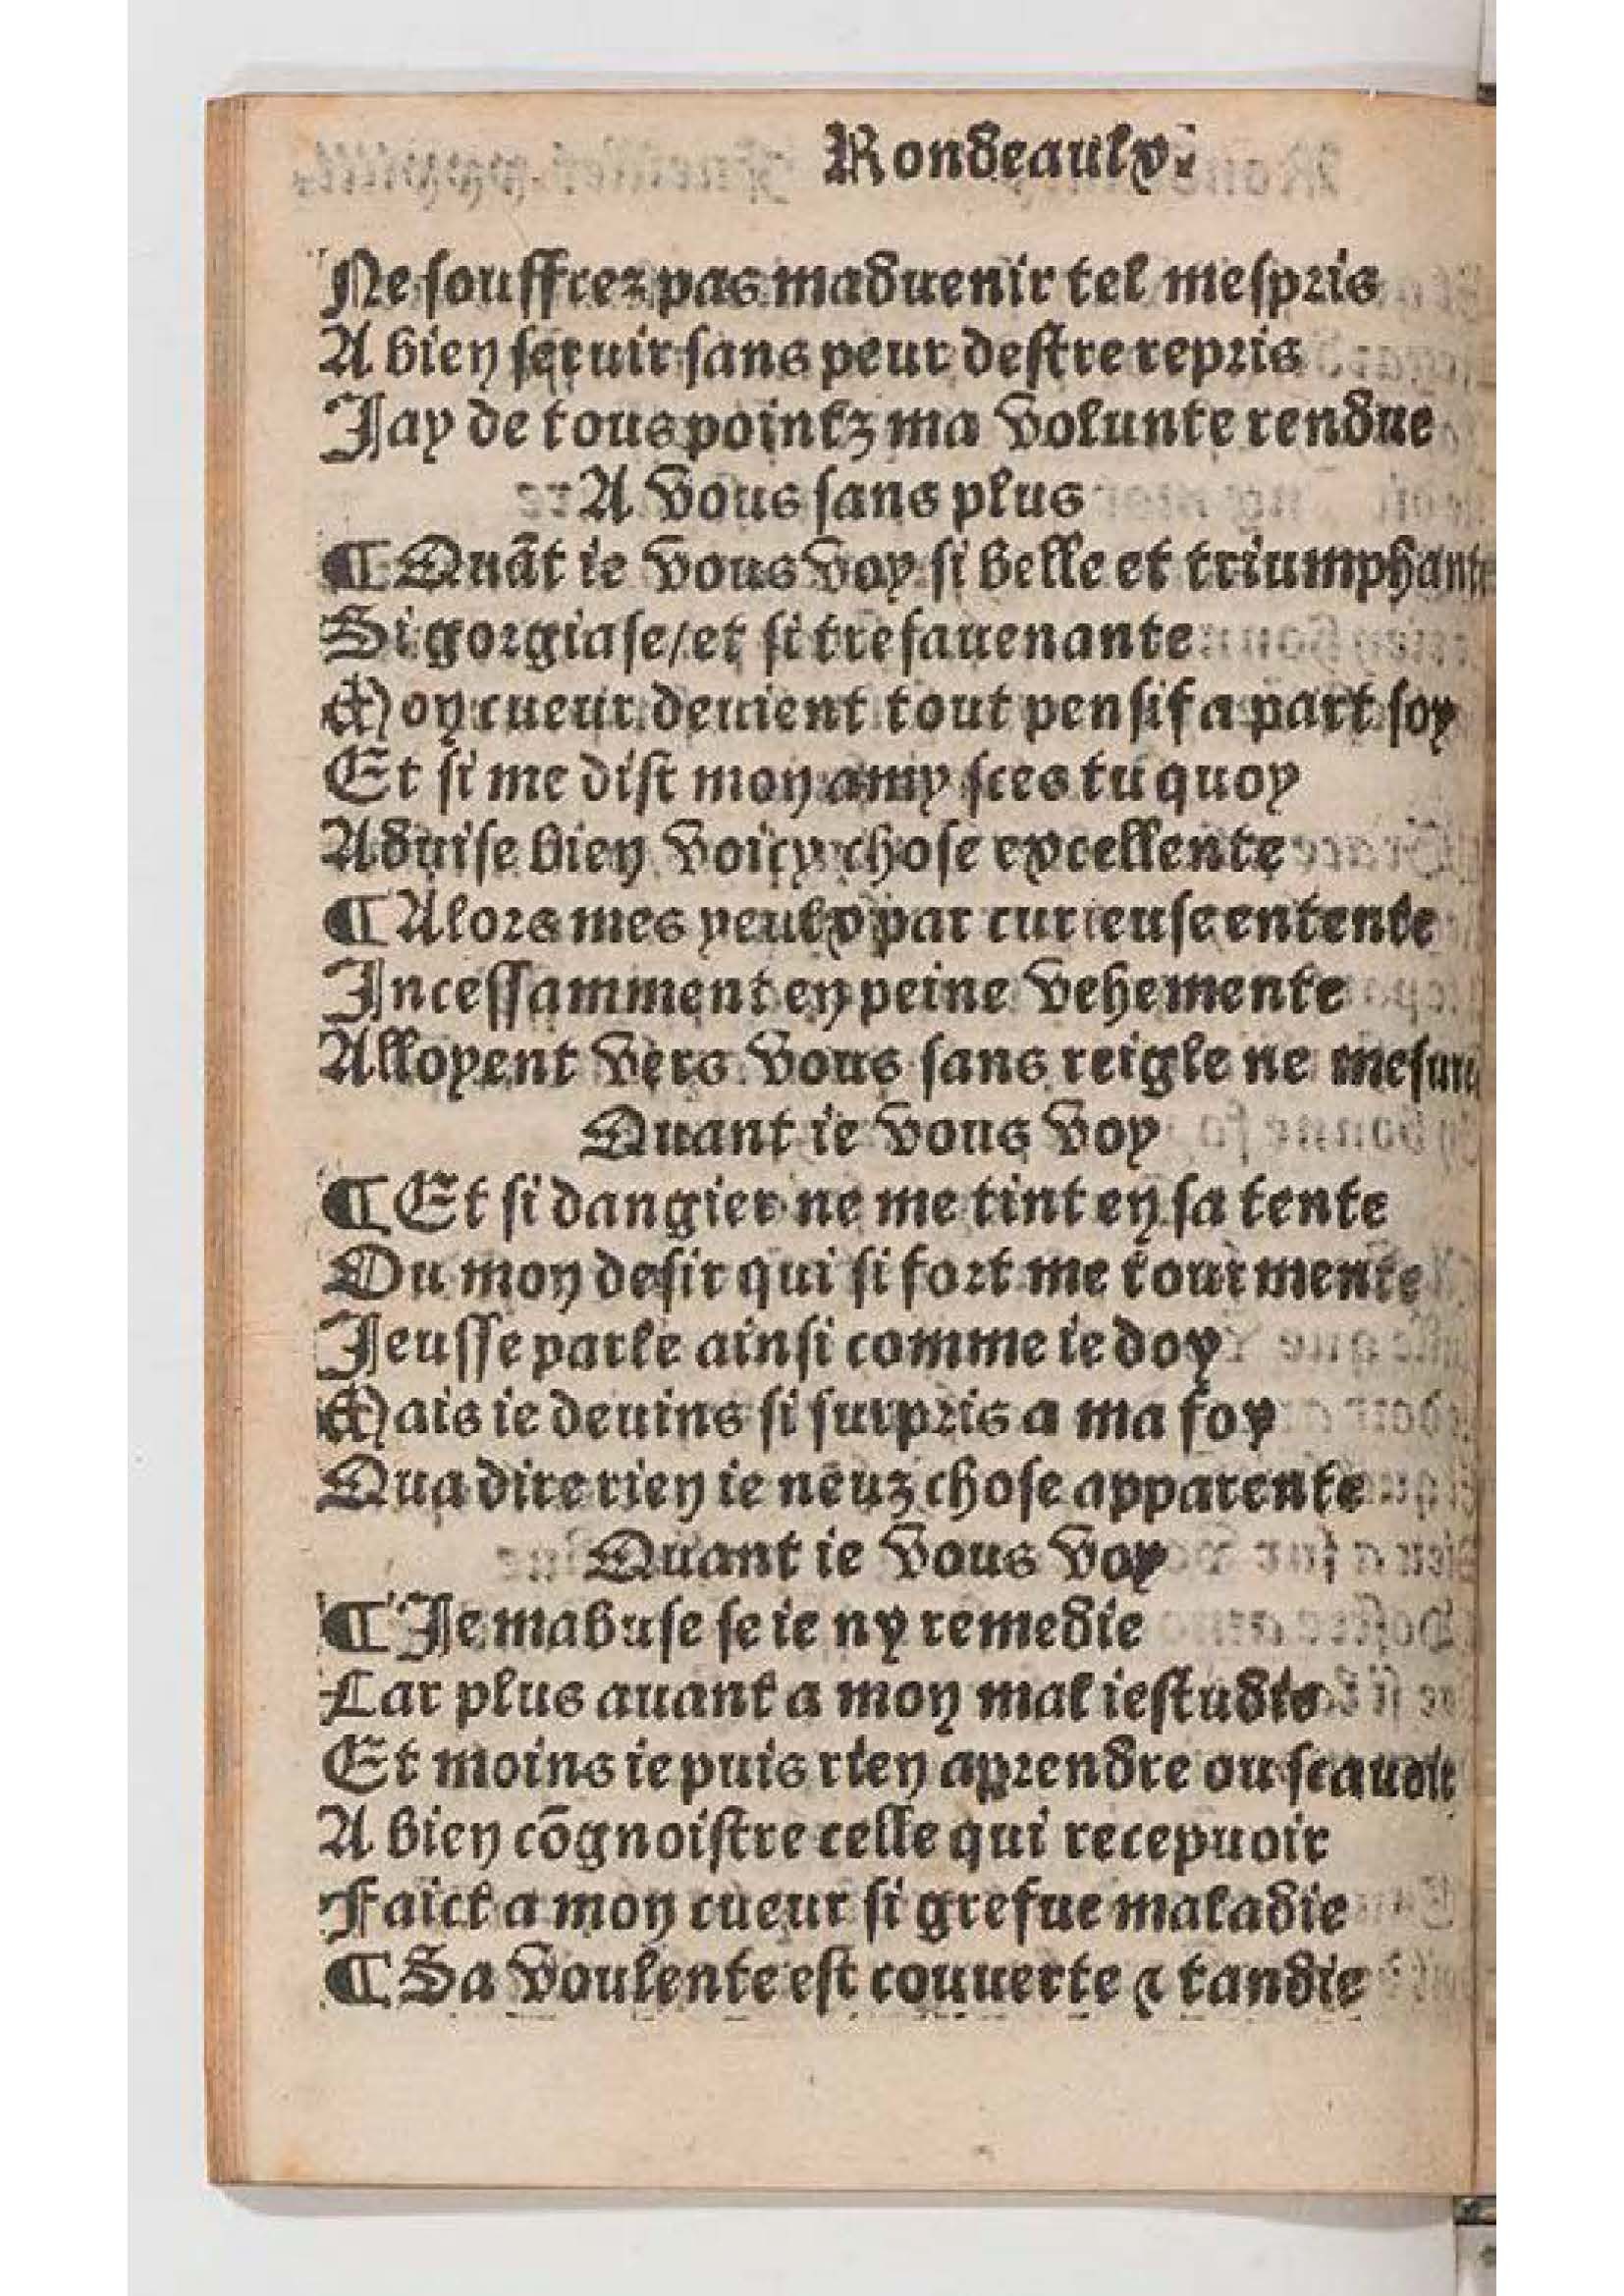 Rondeaulx.
Ne souffrez pas maduenir tel mespris
A bien seruir sans peur destre repris
Jay de tous pointz ma volunte rendue
A vous sans plus
¶ Quãt ie vous voy si belle et triumphante
Si gorgiase / et si tresauenante
Mon cueur deuient tout pensif a part soy
Et si me dist mon amy sces tu quoy
Aduise bien voicy chose excellente
¶ Alors mes yeulx par curieuse entente
Incessamment en peine vehemente
Alloyent vers vous sans reigle ne mesure
Quant ie vous voy
¶ Et si dangier ne me tint en sa tente
Ou mon desir qui si fort me tourmente
Jeusse parle ainsi comme ie doy
Mais ie deuins si surpris a ma foy
Qua dire rien ie neuz chose apparente
Quant ie vous voy
¶ Je mabuse se ie ny remedie
Car plus auant a mon mal iestudie
Et moins ie puis rien aprendre ou scauoir
A bien cõgnoistre celle qui recepuoir
Faict a mon cueur si grefue maladie
¶ Sa voulente est couuerte ⁊ tandie